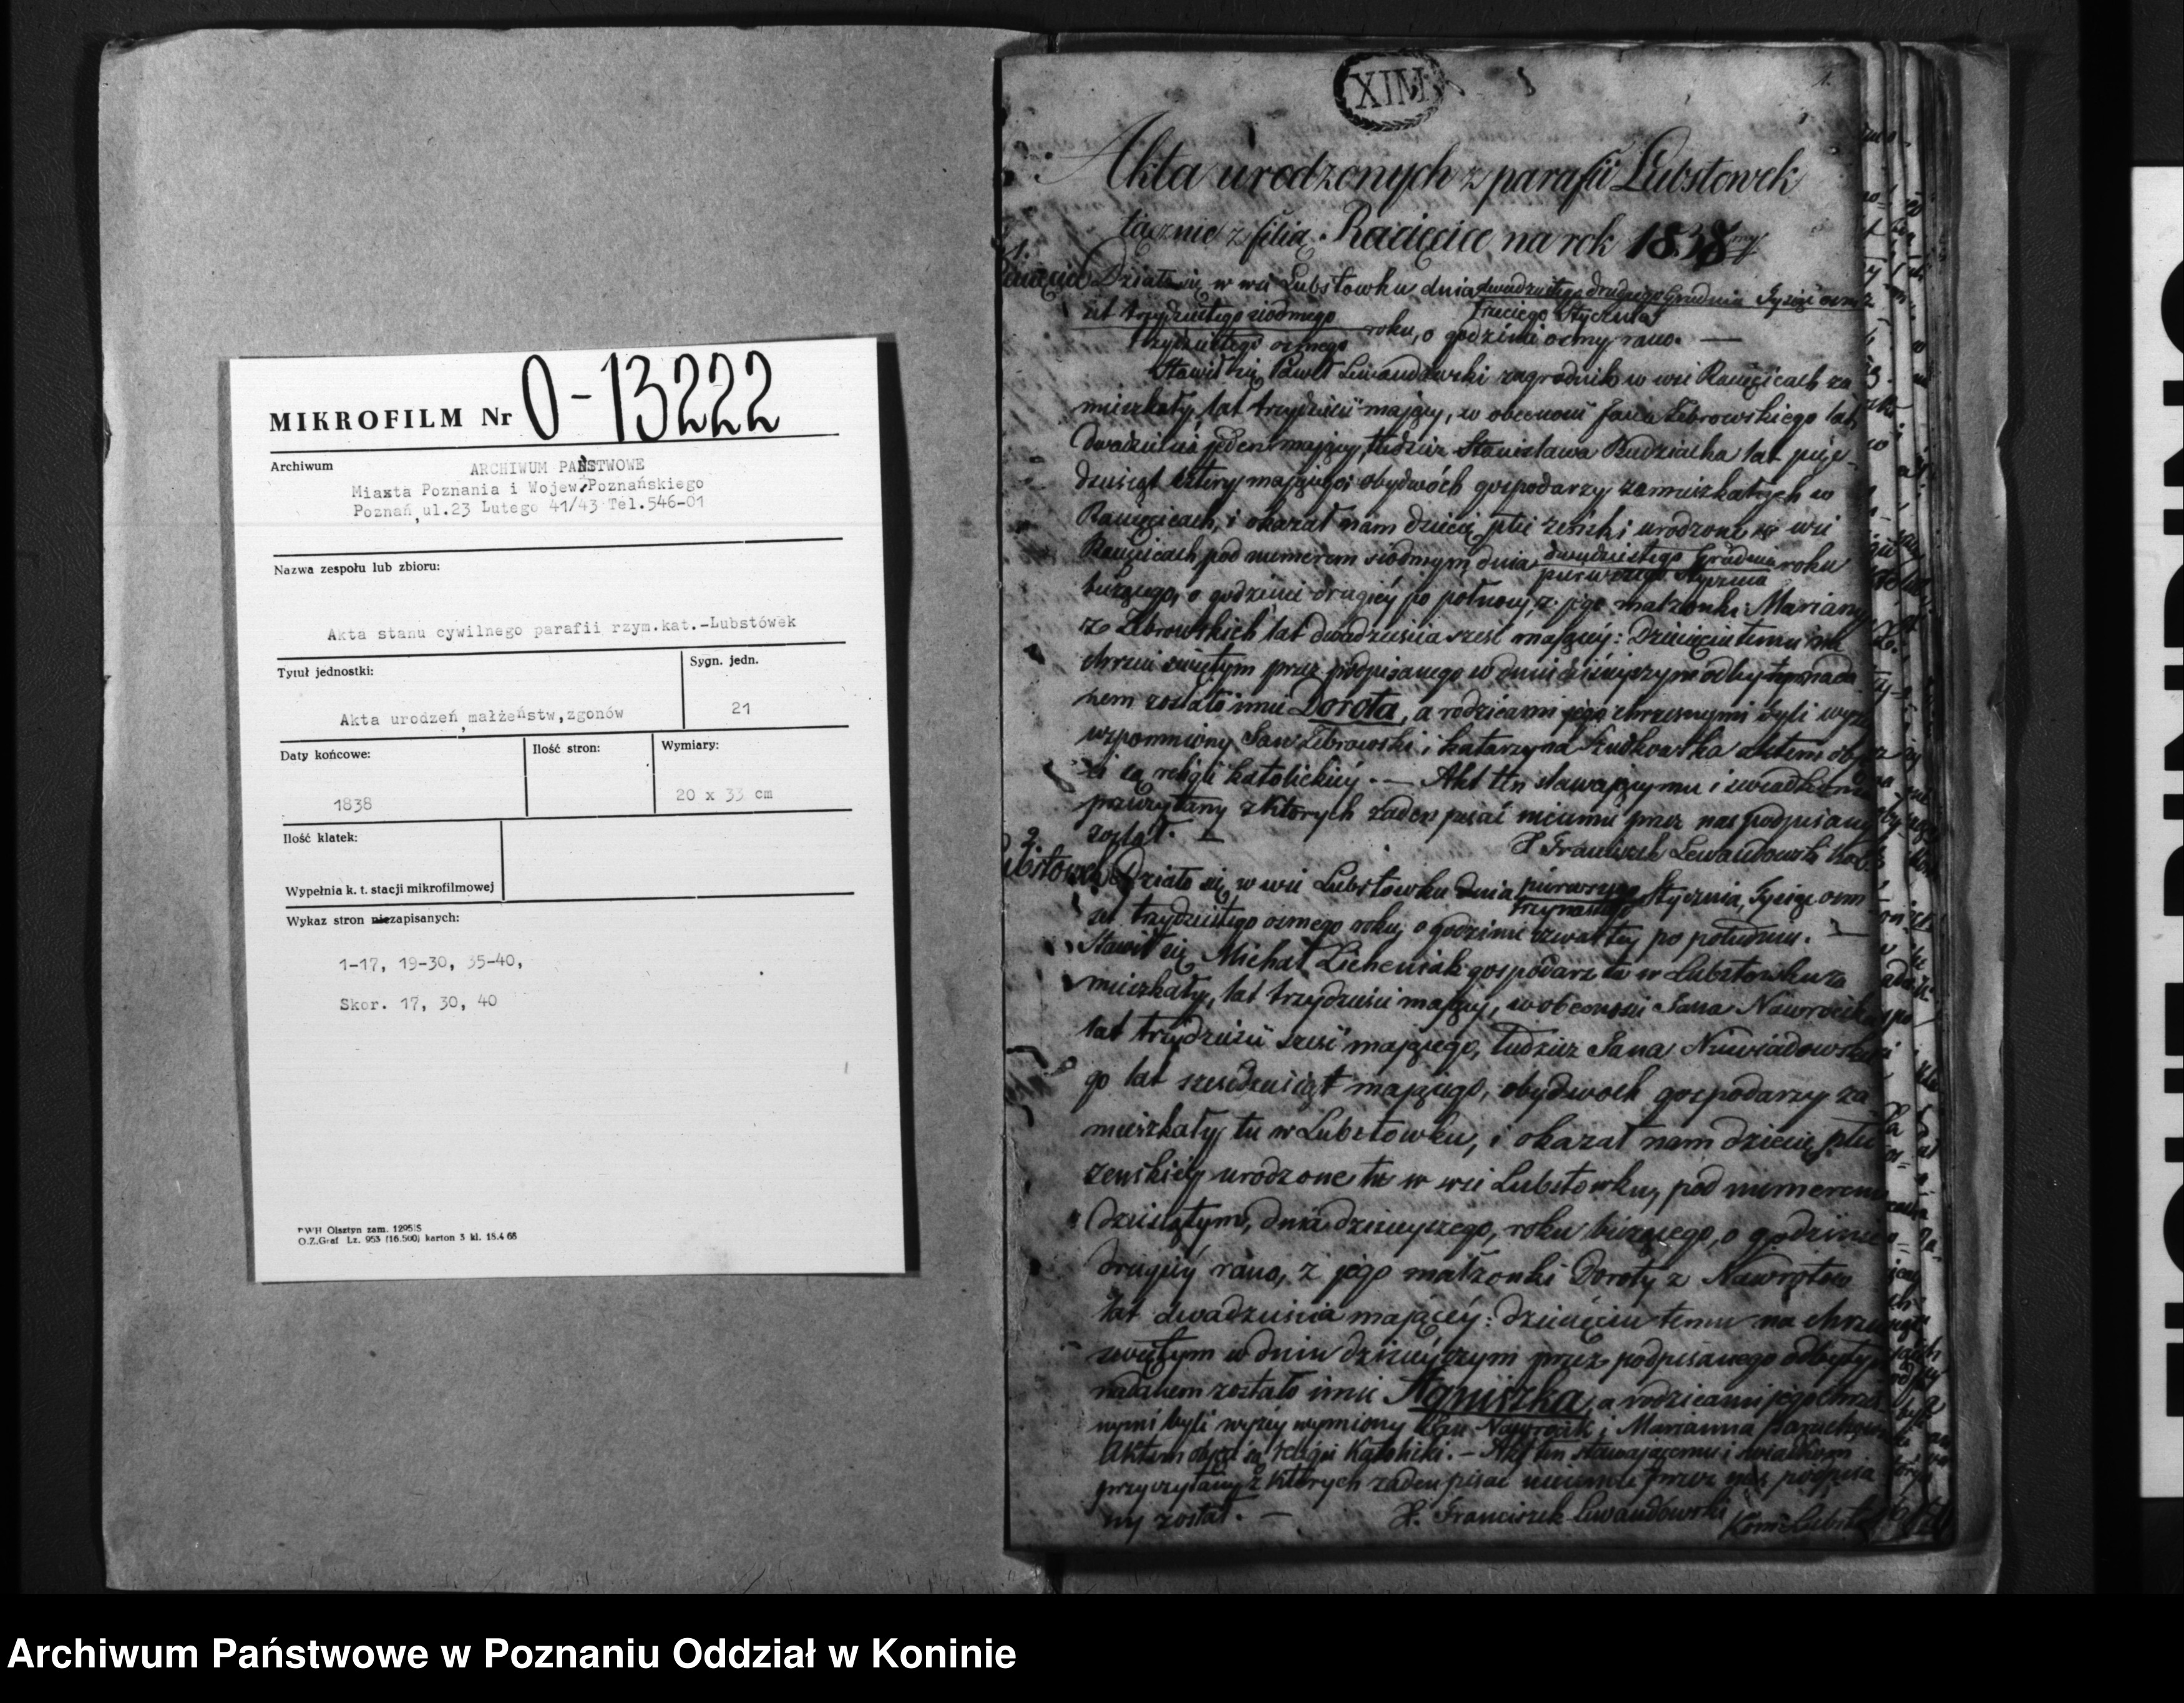 MIKROFILM Nr 0-13222
Archiwum
ARCHIWUM PAŃSTWOWE
Miasta Poznania i Wojew. Poznańskiego
Poznań, ul.23 Lutego 41/43 Tel.546-01
Nazwa zespołu lub zbioru:
Akta stanu cywilnego parafii rzym.kat.-Lubstówek
Tytuł jednostki:
Sygn. jedn.
Akta urodzeń, małżeństw,zgonów
21
Daty końcowe:
Ilość stron:
Wymiary:
1838
20 x 33 cm
Ilość klatek:
Wypełnia k. t. stacji mikrofilmowej
Wykaz stron niezapisanych:
1-17, 19-30, 35-40,
Skor. 17, 30, 40
Olsztyn zam. 1295/S
O.Z.Graf Lz. 953 (16.500) karton 3 kl. 18.4 68
XIM
1.
Akta urodzonych z parafii Lubstowek
łącznie z filią Racięcice na rok 1838
1.
Działo się w wsi Lubstowku dnia dwudziestego drugiego Grudnia Tysiąc osm
set trzydziestego siodmego trzeciego Stycznia
trzydziestego osmego roku, o godzinie osmy rano. —
Stawił się Paweł Lewandowski zagrodnik w wsi Racięcicach za
mieszkały, lat trzydzieści mający, w obecności Jana Zebrowskiego lat
dwadzieścia jeden mający, tudzież Stanisława Rudziaka lat pięć-
dziesiąt cztery mającego, obydwóch gospodarzy zamieszkałych w
Racięcicach, i okazał nam dziecię płci żeński urodzone w wsi
Racięcicach pod numerem siodmym dnia dwudziestego Grudnia roku
pierwszego Stycznia
bieżącego, o godzinie drugiéy po północy, z jego małzonki Maryanny
z Zebrowskich lat dwadzieścia sześć mającéy: Dziecięciu temu na
chrzcie świętym przez podpisanego w dniu dzisiejszym odbytym nada
nem zostało imie Dorota, a rodzicami jego chrzesnymi byli wyżej
wspomniony Jan Zebrowski i Katarzyna
są religii katolickiéy. — Akt ten stawającymu i świadkom
przeczytany z których zaden pisać nieumie przez nas podpisany
został. —
X Franciszek Lewandowski
2.
Lubstowek
Działo się w wsi Lubstowku dnia pierwszego Stycznia, Tysiąc osm
trzynastego
set trzydziestego osmego roku, o godzinie czwartey po południu. —
Stawił się Michał Licheniak gospodarz tu w Lubstowku za
mieszkały, lat trzydzieści mający, w obecności Jana Nawrocika
lat trzydzieści sześć mającego, tudzież Jana Niewiadowski
go lat sześćdziesiąt mającego, obydwoch gospodarzy za
mieszkały tu w Lubstowku, i okazał nam dziecię płci
zenskiéy urodzone tu w wsi Lubstowku, pod numerem
dziesiątym, dnia dzisieyszego, roku bieżącego, o godzinie
drugiéy rano, z jego małzonki Doroty z Nawrotow
lat dwadzieścia mającéy: dziecięciu temu na chrzcie
świętym w dniu dzisieyszym przez podpisanego odbytym
nadanem zostało imie Agnieszka, a rodzicami jego chrzes
nymi byli wyzey wymiony Jan Nawrocik i Maryanna
Aktem objęci są Religii Katolicki. — Akt ten stawającemu i świadkom
przyczytany z których zaden pisać nieumie przez nas podpisa
ny został. —
X. Franciszek Lewandowski
Archiwum Państwowe w Poznaniu Oddział w Koninie